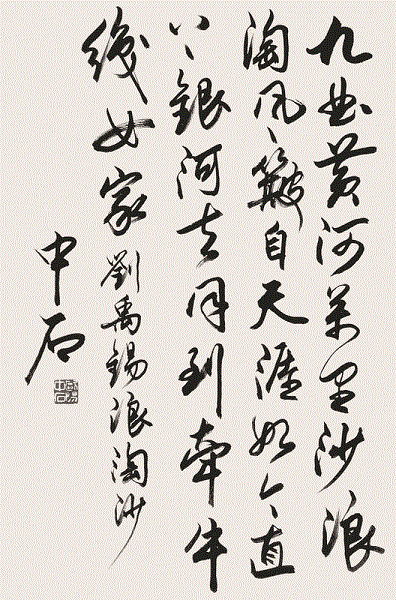 九曲黄河萬里沙浪
淘风簸自天涯如今直
上銀河去同到牽牛
織女家 劉禹錫浪淘沙
中石